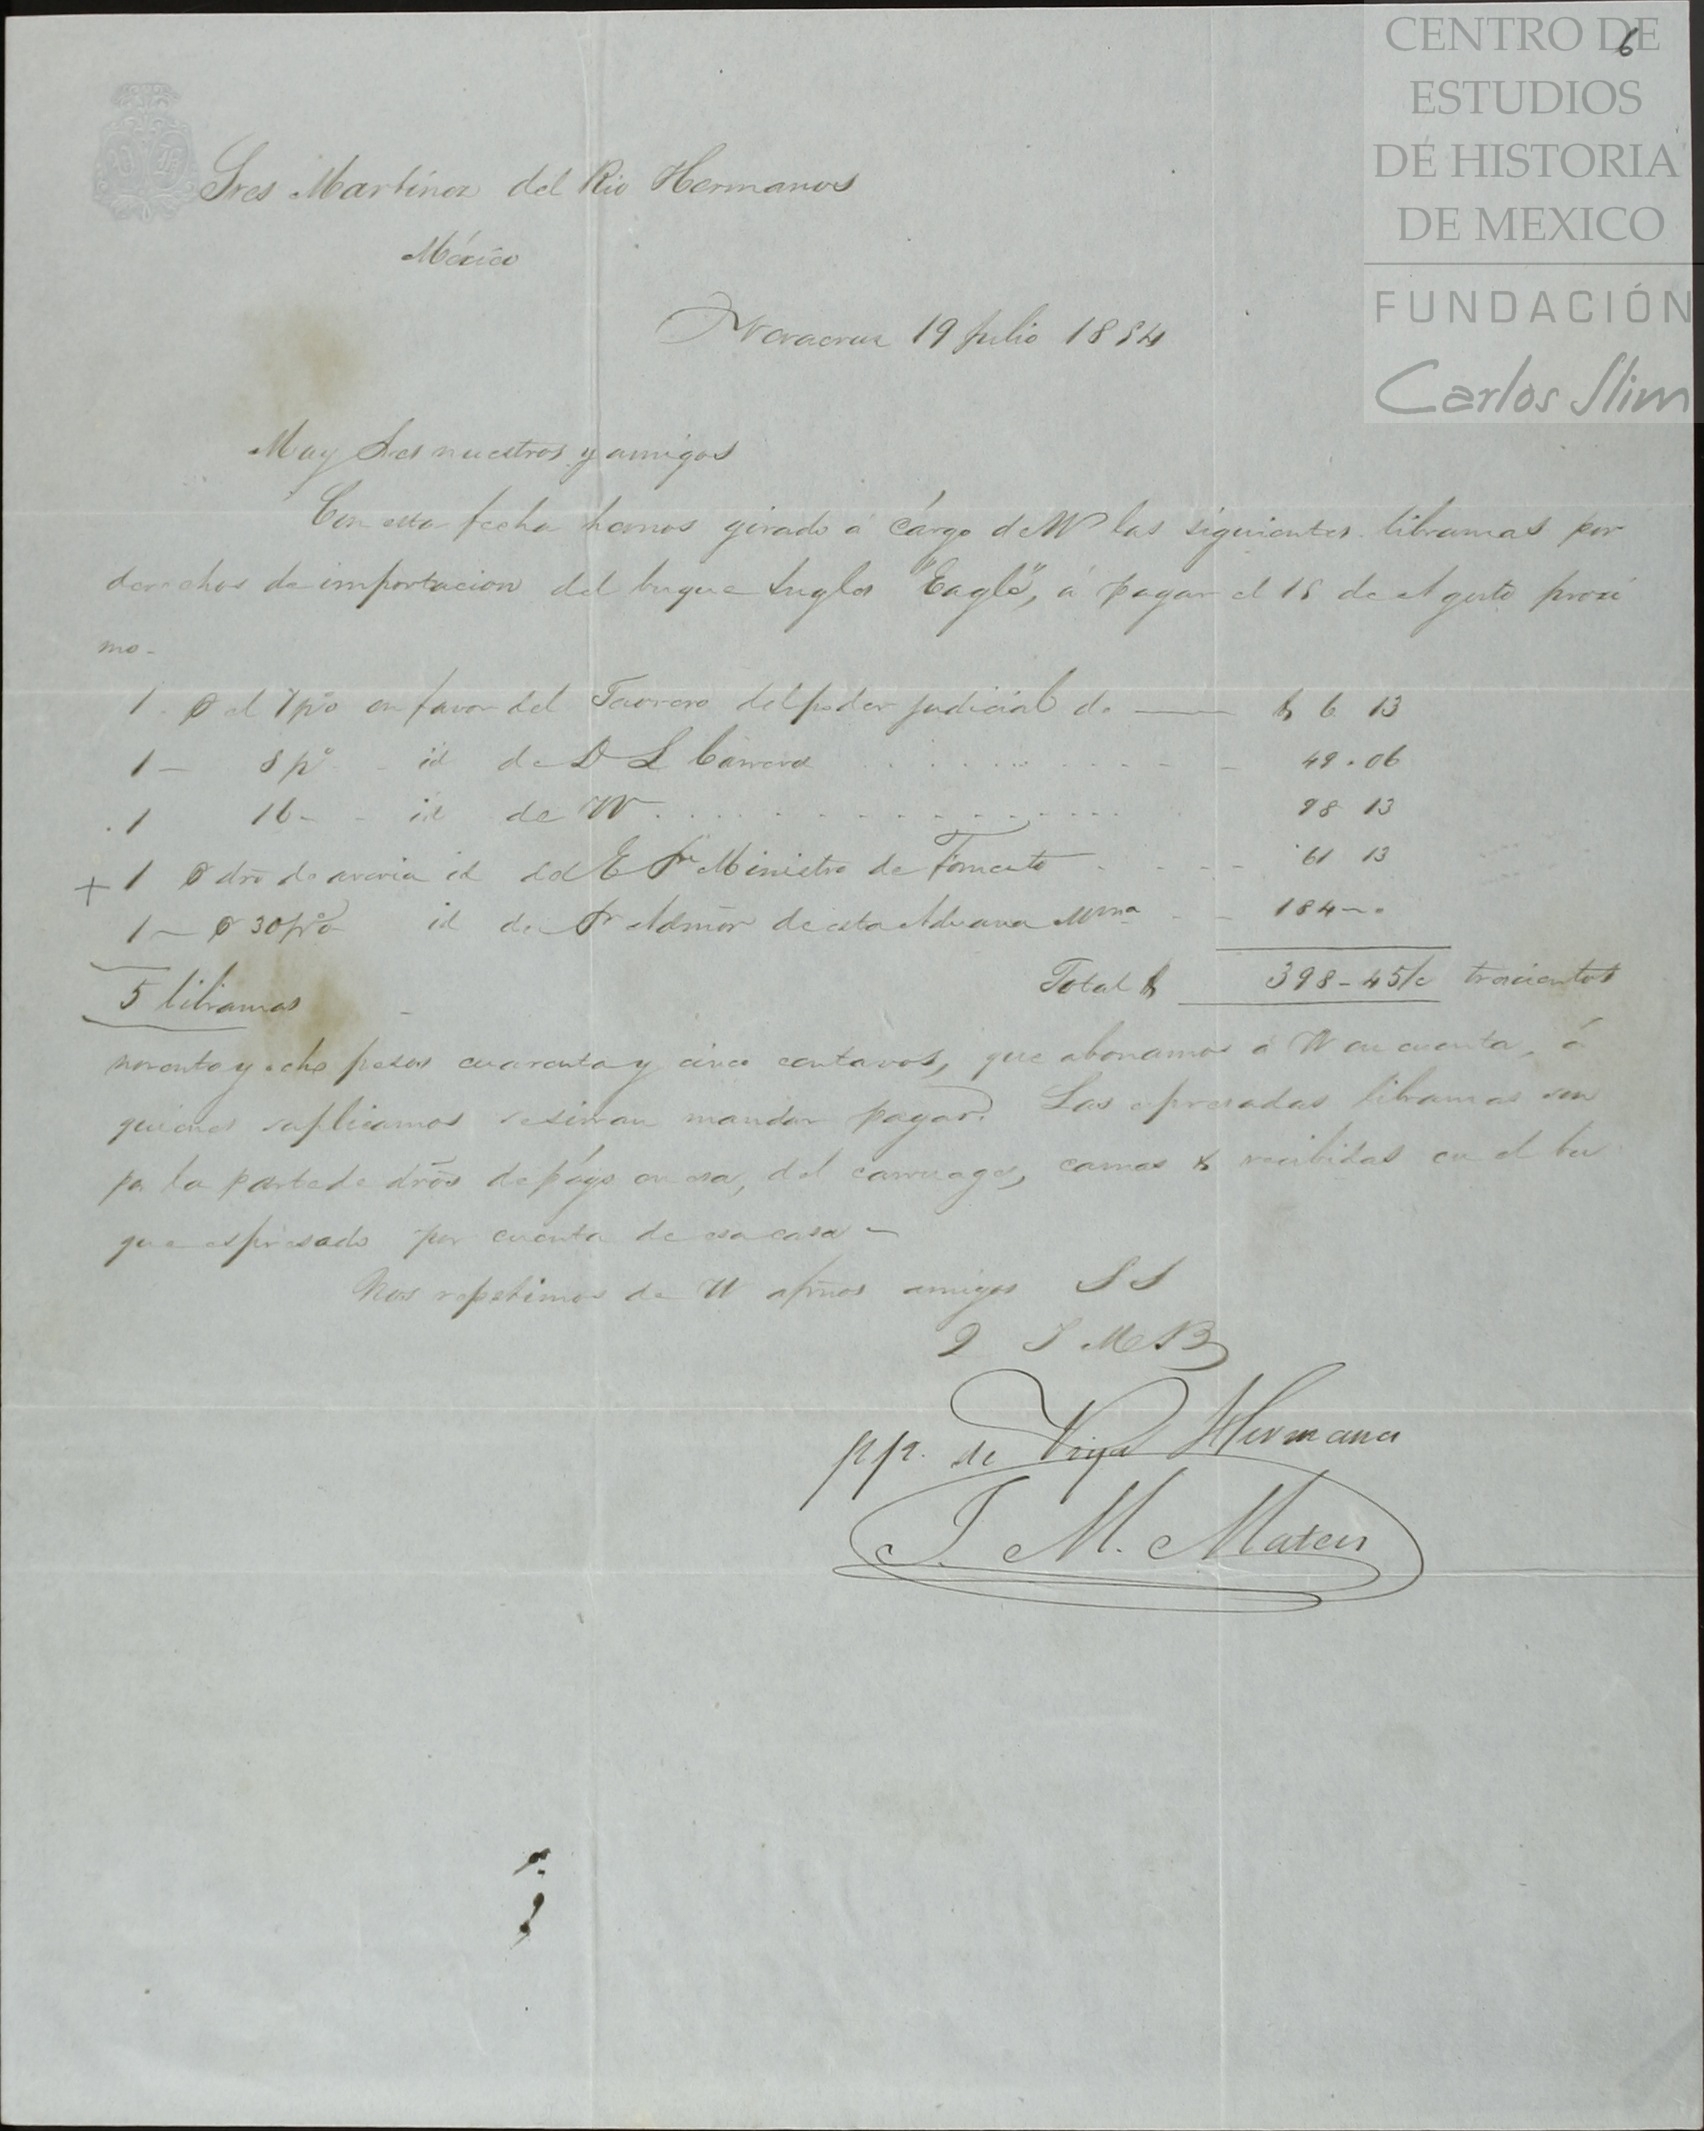 6
CENTRO DE
ESTUDIOS
DE HISTORIA
DE MEXICO
FUNDACIÓN
Carlos Slim
Sres Martínez del Rio Hermanos
México
Veracruz 19 Julio 1854
Muy Sres nuestros y amigos
Con esta fecha hemos girado á cárgo de VV las siguientes libranzas por
derechos de importacion del buque Ingles "Eagle", á pagar el 15 de Agosto procsi
mo-
1 el 1 po en favor del Tesorero del poder judicial de $ 6 13
1 - 8 po - id de D L Carrera 49.06
1 16 - id de VV 98 13
+ 1 dro de averia id del E Sr Ministro de Fomento 61 13
1 - 30 po id de Sr Admor de esta Aduana Mma 184 - .
5 libranzas Total $ 398-45/c trescientos
noventa y ocho pesos cuarenta y cinco centavos, que abonamos á VV en cuenta, á
quienes suplicamos se sirvan mandar pagar. Las espresadas libranzas son
por la parte de dros de págo en esa, del carruage, camas & recibidas en el bu
que espresado por cuenta de esa casa -
Nos repetimos de VV afmos amigos S S
Q S M B
pp. de Viya Hermanos
J. M. Mateus